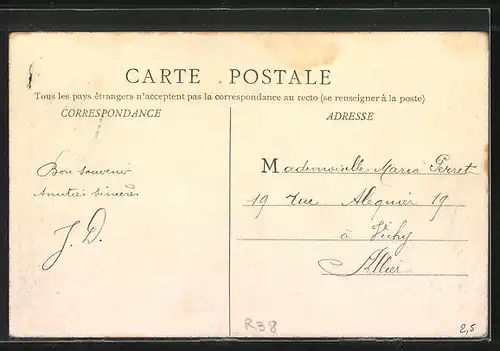 CARTE POSTALE
Tous les pays étrangers n'acceptent pas la correspondance au recto (se renseigner à la poste)
CORRESPONDANCE
ADRESSE
Bon souvenir
Amitiés sincères
J. D.
Mademoiselle Perret
19 rue 19
à Vichy
Allier
R38
2,5